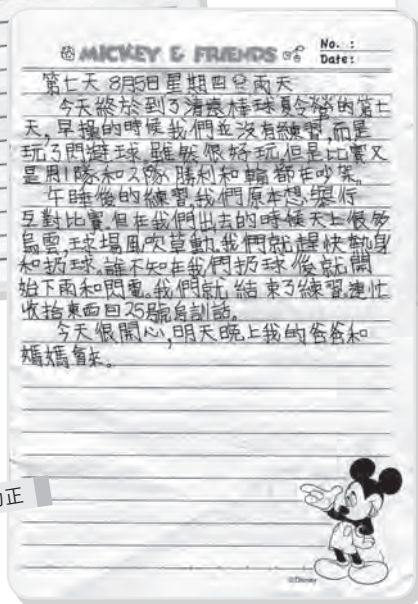 MICKEY & FRIENDS
No. :
Date:
第七天 8月5日 星期四 雨天
今天終於到了清遠棒球夏令營的第七
天,早操的時候我們並沒有練習,而是
玩了閃避球。雖然很好玩,但是比賽又
是用1隊和2隊,勝利和輸都在吵架。
午睡後的練習,我們原本想舉行
互對比賽。但在我們出去的時候天上很多
烏雲,球場風吹草動。我們就趕快熱身
和扔球。誰不知在我們扔球後就開
始下雨和閃電。我們就結束了練習,連忙
收拾東西回25號房訓話。
今天很開心,明天晚上我的爸爸和
媽媽會來。
正
©Disney